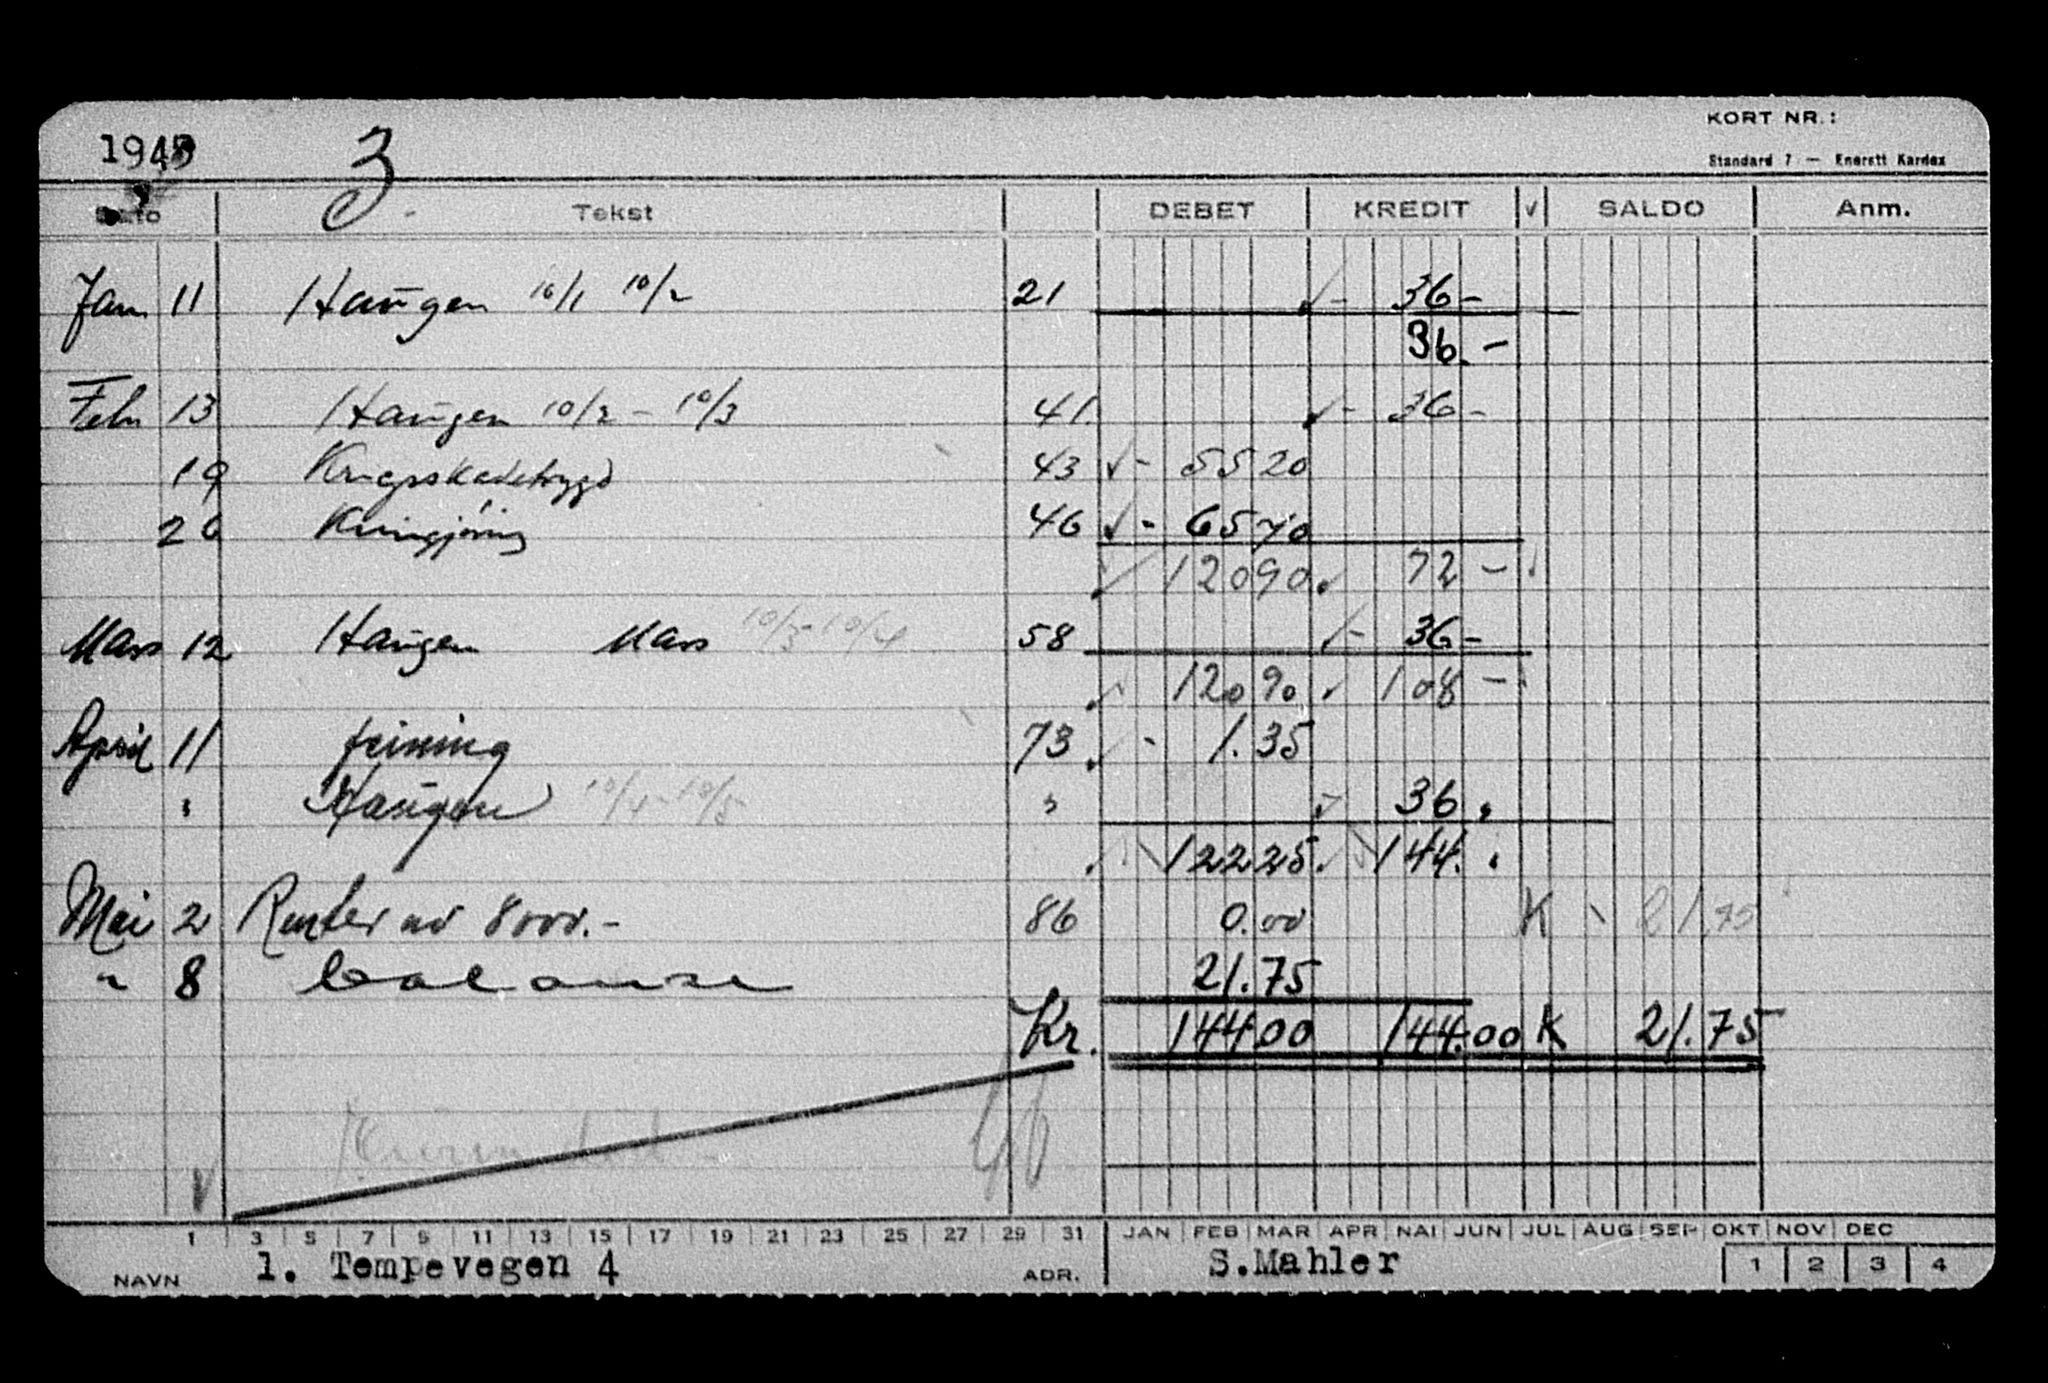 1945 3
KORT NR.:
Standard 7 — Enerett Kardex
Dato Tekst DEBET KREDIT √ SALDO Anm.
Jan 11 Haugen 10/1 10/2 21 36 -
36. -
Febr 13 Haugen 10/2 - 10/3 41. 36 -
19 Krigsskadetrygd 43 - 5520
26 46 - 6570
12090 72 -
Mars 12 Haugen Mars 10/3 - 10/4 58 36 -
12090 108 -
April 11 feining 73 - 1.35
" Haugen 10/4 - 10/5 " 36 "
12225 144. "
Mai 2 Renter av 8000.- 86 0.00 K 21.75
" 8 balanse 21.75
Kr. 14400 144.00 K 21.75
1 3 5 7 9 11 13 15 17 19 21 23 25 27 29 31 JAN FEB MAR APR MAI JUN JUL AUG SEP OKT NOV DEC
NAVN 1. Tempevegen 4 ADR. S.Mahler 1 2 3 4